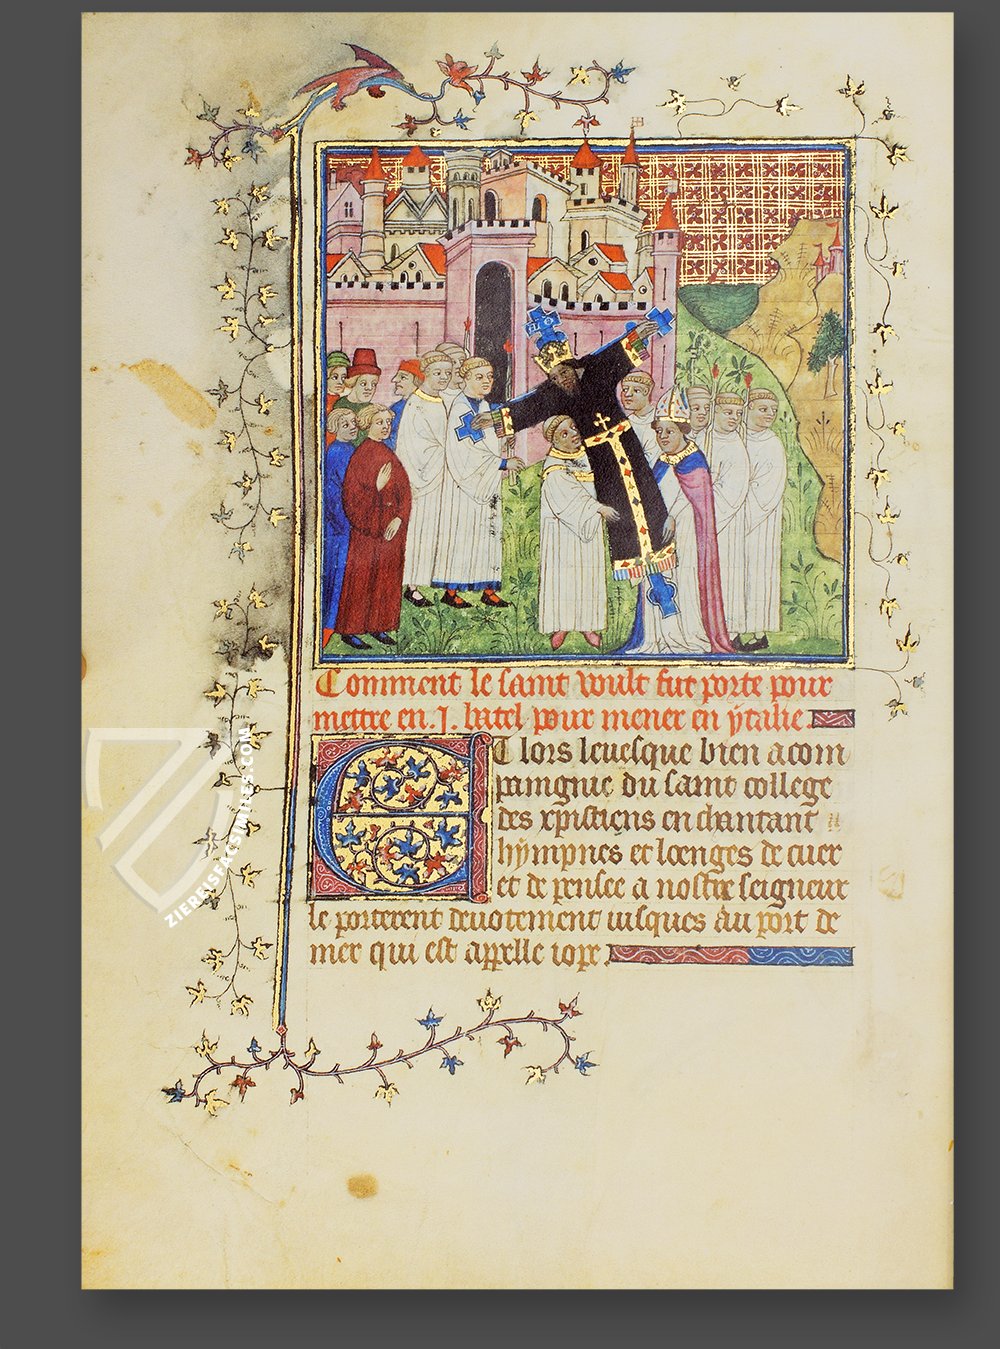 Comment le saint voult fut porte pour
mettre en .j. batel pour mener en ytalie
Et lors levesque bien acom
paingnie du saint college
des xpistiens en chantant
hympnes et loenges de cuer
et de pensee a nostre seigneur
le porterent devotement iusques au port de
mer qui est appelle iope
ZIEREISFACSIMILES.COM